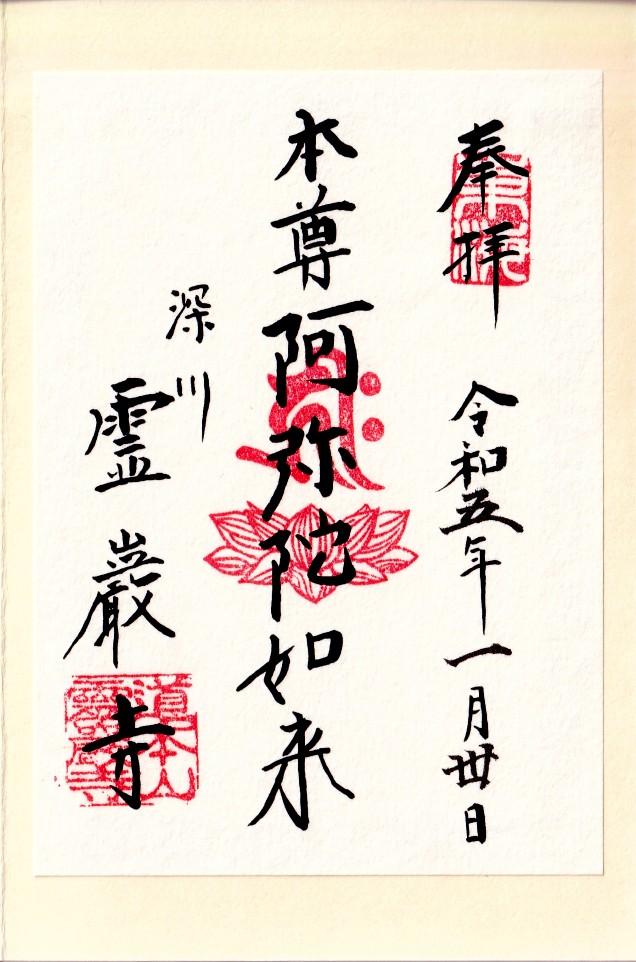 奉拝
令和五年一月丗日
本尊阿弥陀如来
深川
霊巌寺